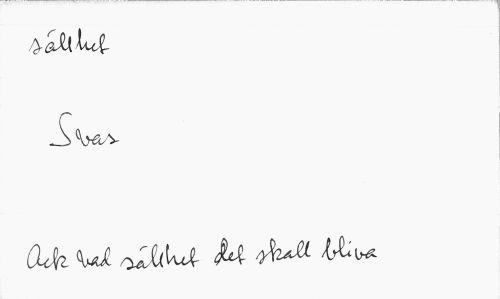 sällhet
Svas
Ack vad sällhet det skall bliva